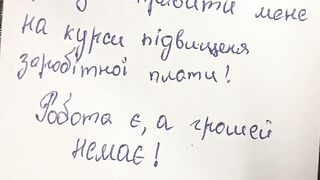 мене
на курси підвищеня
заробітної плати!
Робота є, а грошей
немає!